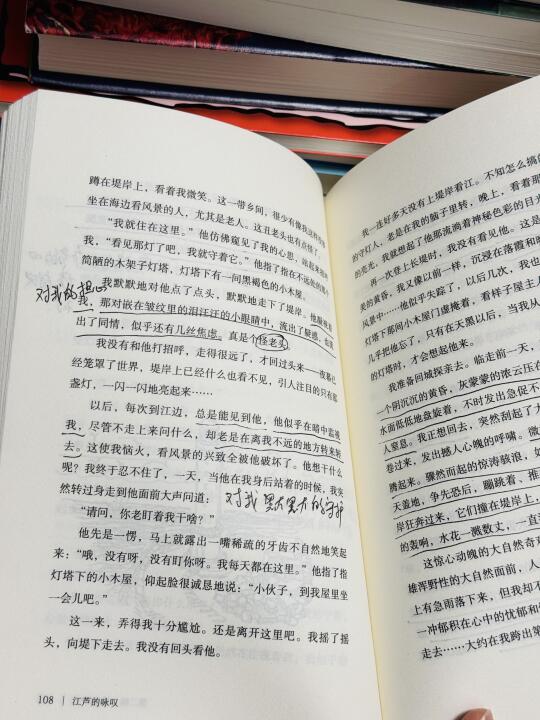 蹲在堤岸上，看着我微笑。这一带乡间，很少有像我这样的
坐在海边看风景的人，尤其是老人。这丑老头也有点怪了。
“我就住在这里。”他仿佛窥见了我的心思，站起来指
我，“看见那灯了吧，我就守着它。”他指了指在不远处的那个
简陋的木架子灯塔，灯塔下有一间黑褐色的小木屋。
我默默地对他点了点头，默默地走下了堤岸。他
对我的担心
我，那对嵌在皱纹里的泪汪汪的小眼睛中，流出了疑惑，也流
出了同情，似乎还有几丝焦虑。真是个怪老头。
我没有和他打招呼，走得很远了，才回过头来——夜幕已
经笼罩了世界，堤岸上已经什么也看不见，引人注目的只有那
盏灯，一闪一闪地亮起来……
以后，每次到江边，总是能见到他，他似乎在暗中监视
我，尽管不走上来问什么，却老是在离我不远的地方转来转
去。这使我恼火，看风景的兴致全被他破坏了。他想干什么
呢？我终于忍不住了，一天，当他在我身后站着的时候，我突
然转过身走到他面前大声问道：
对我默默默的守护
“请问，你老盯着我干啥？”
他先是一愣，马上就露出一嘴稀疏的牙齿不自然地笑起
来：“哦，没有呀，没有盯你呀。我每天都在这里。”他指了指
灯塔下的小木屋，仰起脸很诚恳地说：“小伙子，到我屋里坐
一会儿吧。”
这一来，弄得我十分尴尬。还是离开这里吧。我摇了摇
头，向堤下走去。我没有回头看他。
108 | 江芦的咏叹
我一连好多天没有上堤岸看江。不知怎么搞的
的守灯人，老是在我的脑子里转，晚上，看着那
的亮光，我就想起了他那流淌着神秘色彩的目光
再一次登上长堤时，我没有看见他。这是
美的黄昏，我又像以前一样，沉浸在落霞和晚
风景中……他似乎失踪了，以后几次，我也
灯塔下那间小木屋门虚掩着，看样子屋主人
几乎把他忘了，只有在天黑以后，当我从
的灯塔时，才会想起他来。
我准备回城探亲去。临走前一天，
个阴沉沉的黄昏，灰蒙蒙的浓云压在
水面低低地盘旋着，不时发出急促不
人窒息。我正想回去，突然刮起了大
卷过来，发出撼人心魄的呼啸。微
腾起来。骤然而起的惊涛骇浪，如
天盖地，争先恐后，蹦跳着，推
岸狂奔过来，它们撞在堤岸上，
的轰响，水花一溅数丈，一直
这惊心动魄的大自然奇
雄浑野性的大自然面前，人
上有急雨落下来，但我却不
一冲郁积在心中的忧郁和
走去……大约在我跨出第